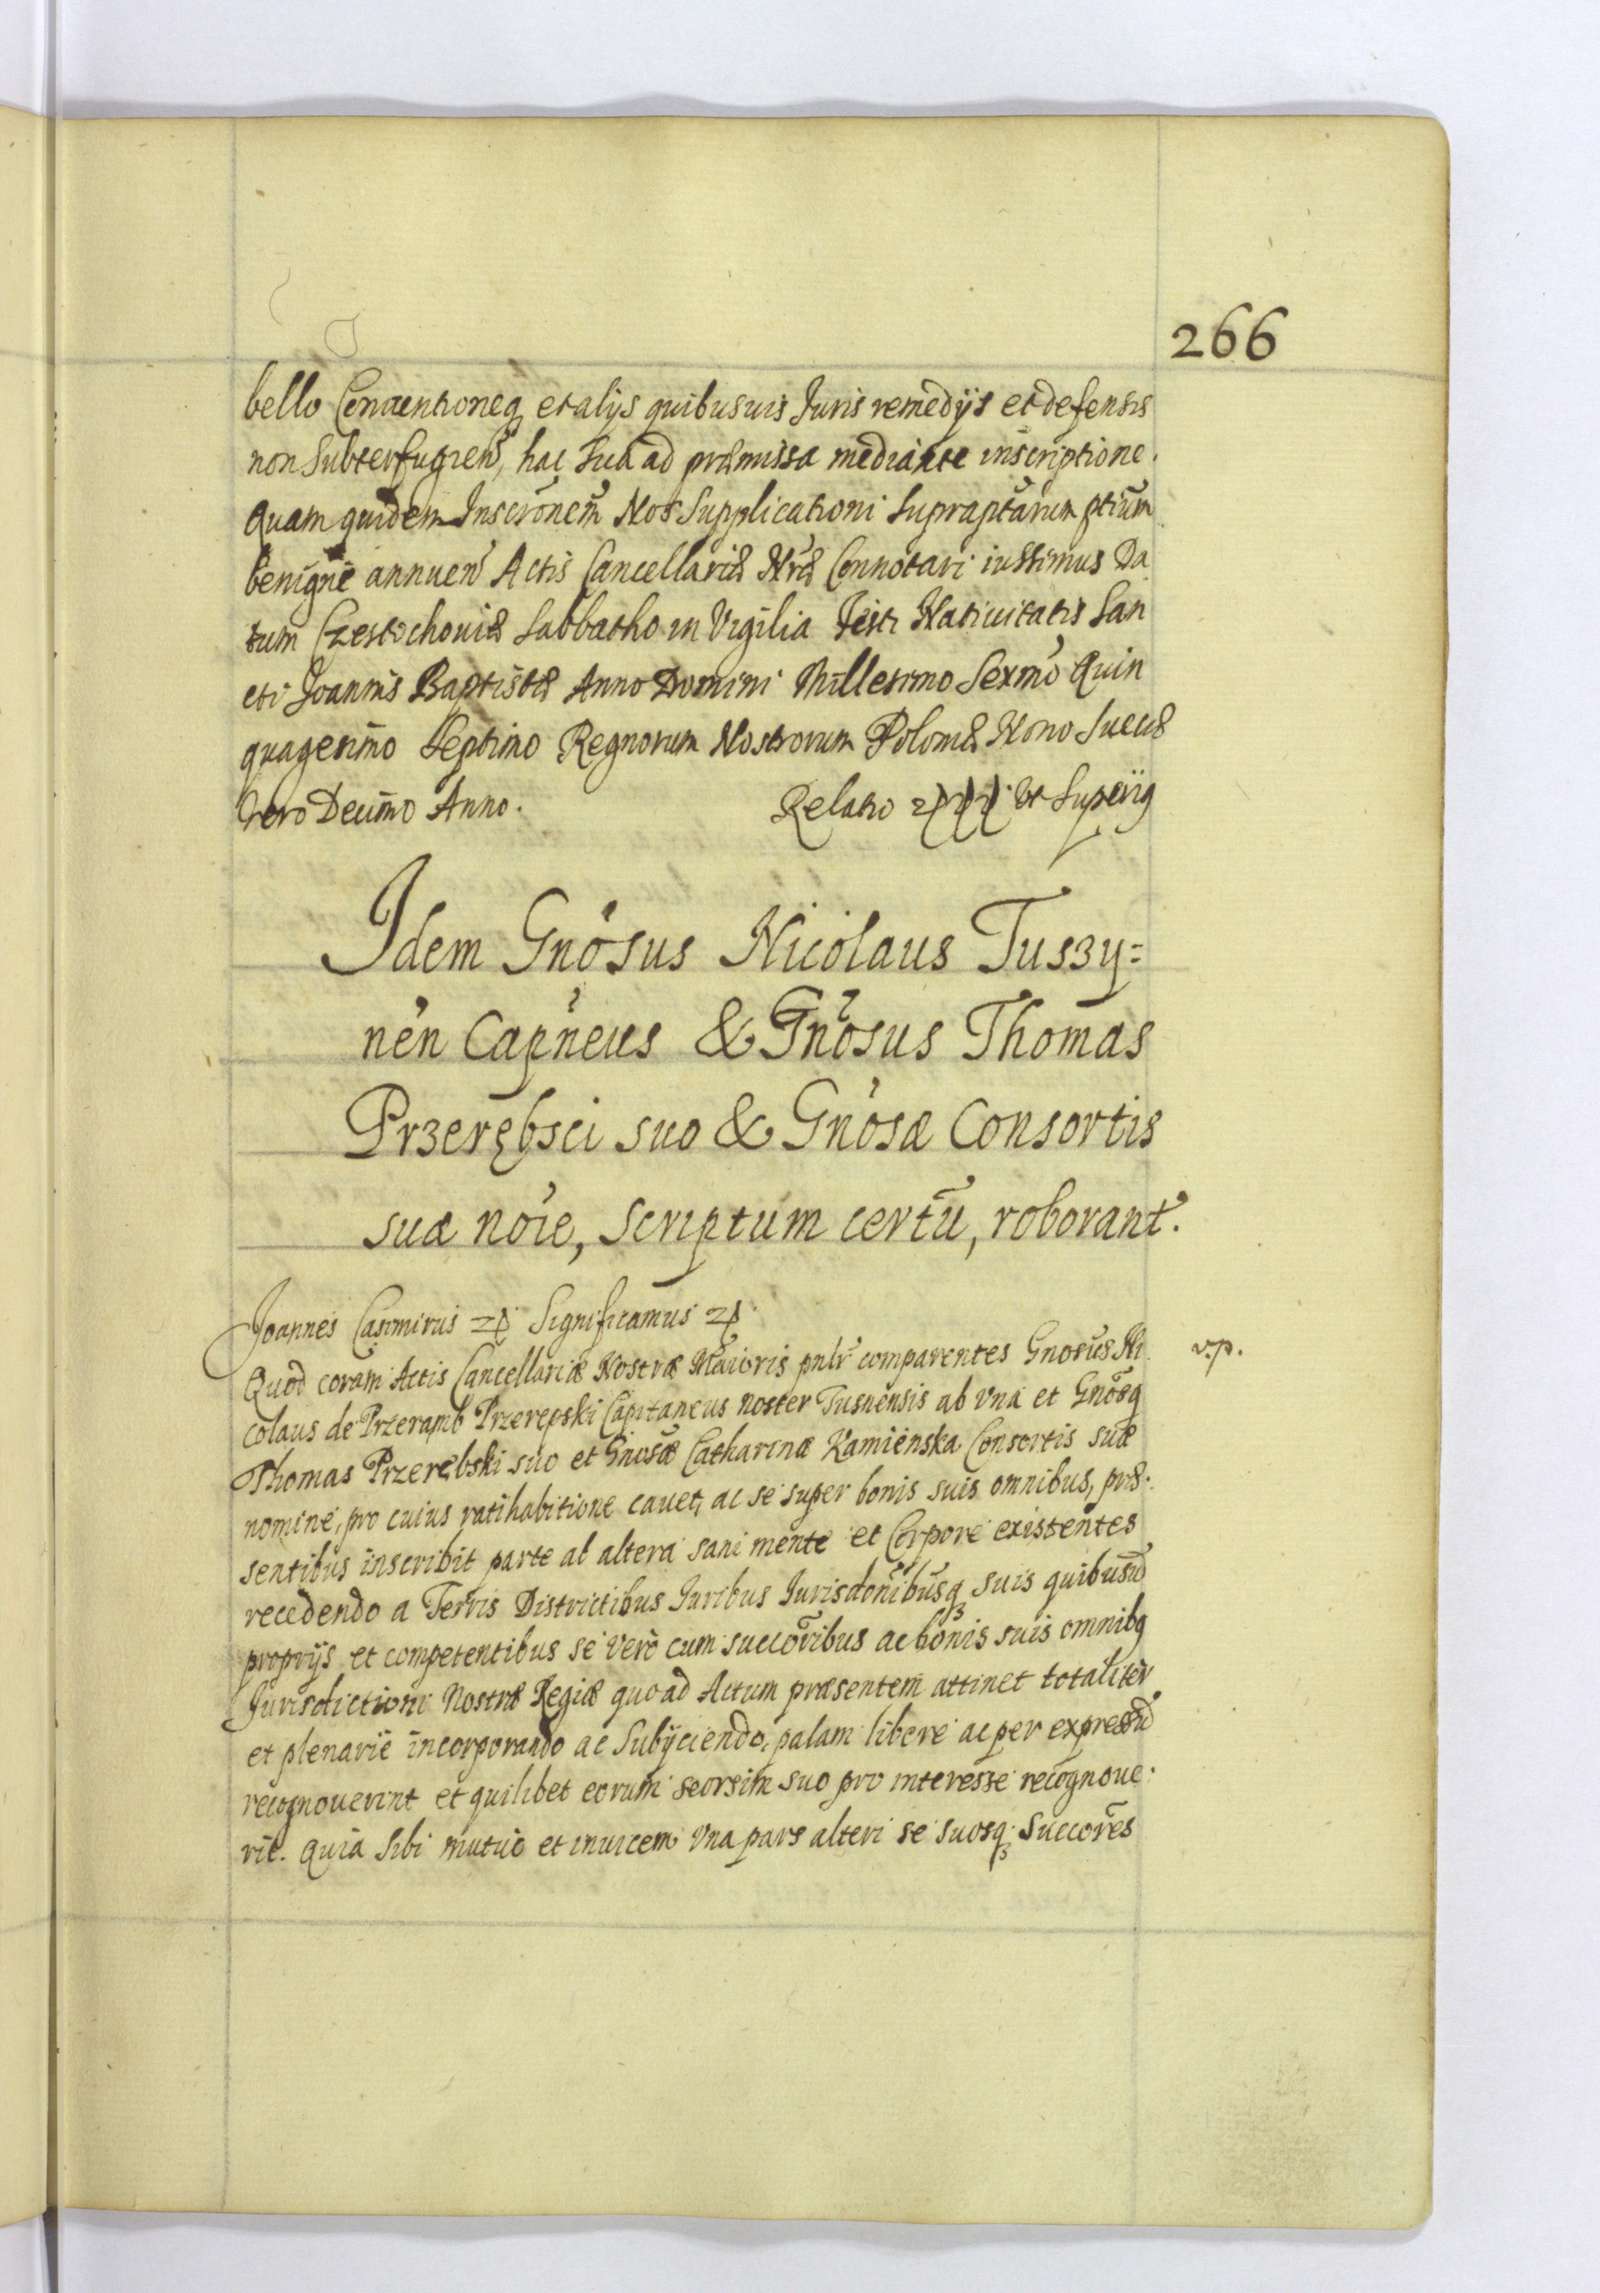 266
bello Conventioneq et alijs quibusuis Juris remedijs et defensis
non Subterfugien, hac Sua ad præmissa mediante inscriptione.
Quam quidem Inscrōnem Nos Supplicationi Supraptārum ptium
benignè annuen Actis Cancellariæ Nræ Connotari iussimus Da
tum Czestochouiæ Sabbatho in Vigilia Festi Natiuitatis San
cti Joannis Baptistæ Anno Domini Millesimo Sexmo Quin
quagesimo Septimo Regnorum Nostrorum Poloniæ Nono Sueciæ
Vero Decimo Anno. Relatio Ut Superiq
Idem Gnosus Nicolaus Tuszy=
nen Capneus & Gnosus Thomas
Przerębsci suo & Gnosæ Consortis
suæ noie, scriptum certū, roborant.
Joannes Casimirus Significamus
Quod coram Actis Cancellariæ Nostræ Maioris pnlr comparentes Gnosus Ni
v.p.
colaus de Przeramb Przerepski Capitaneus noster Tusnensis ab vna et Gnosq
Thomas Przerębski suo et Gnosæ Catharinæ Kamienska Consortis suæ
nomine, pro cuius ratihabitione cauet, ac se super bonis suis omnibus, præ:
sentibus inscribit parte ab altera sani mente et Corpore existentes
recedendo a Terris Districtibus Juribus Jurisdonibusq suis quibusuis
proprijs et competentibus se verò cum succoribus ac bonis suis omnibq
Jurisdictioni Nostræ Regiæ quoad Actum præsentem attinet totalitèr
et plenariè incorporando ac Subijciendo, palam liberè ac per expressū
recognouerint et quilibet eorum seorsim suo pro interesse recognoue:
rit. Quia Sibi mutuo et inuicem Vna pars alteri se suosq Succores